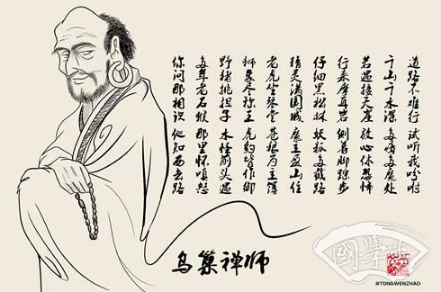 道路不难行 试听我吩咐
千山千水深 多瘴多魔处
若遇接天崖 放心休恐怖
行来摩耳岩 侧着脚踪步
仔细黑松林 妖狐多截路
精灵满国城 魔主盈山住
老虎坐琴堂 苍狼为主簿
狮象尽称王 虎豹皆作御
野猪挑担子 水怪前头遇
多年老石猴 那里怀嗔怒
你问那相识 他知西去路
乌巢禅师
@TONGWENZHAO